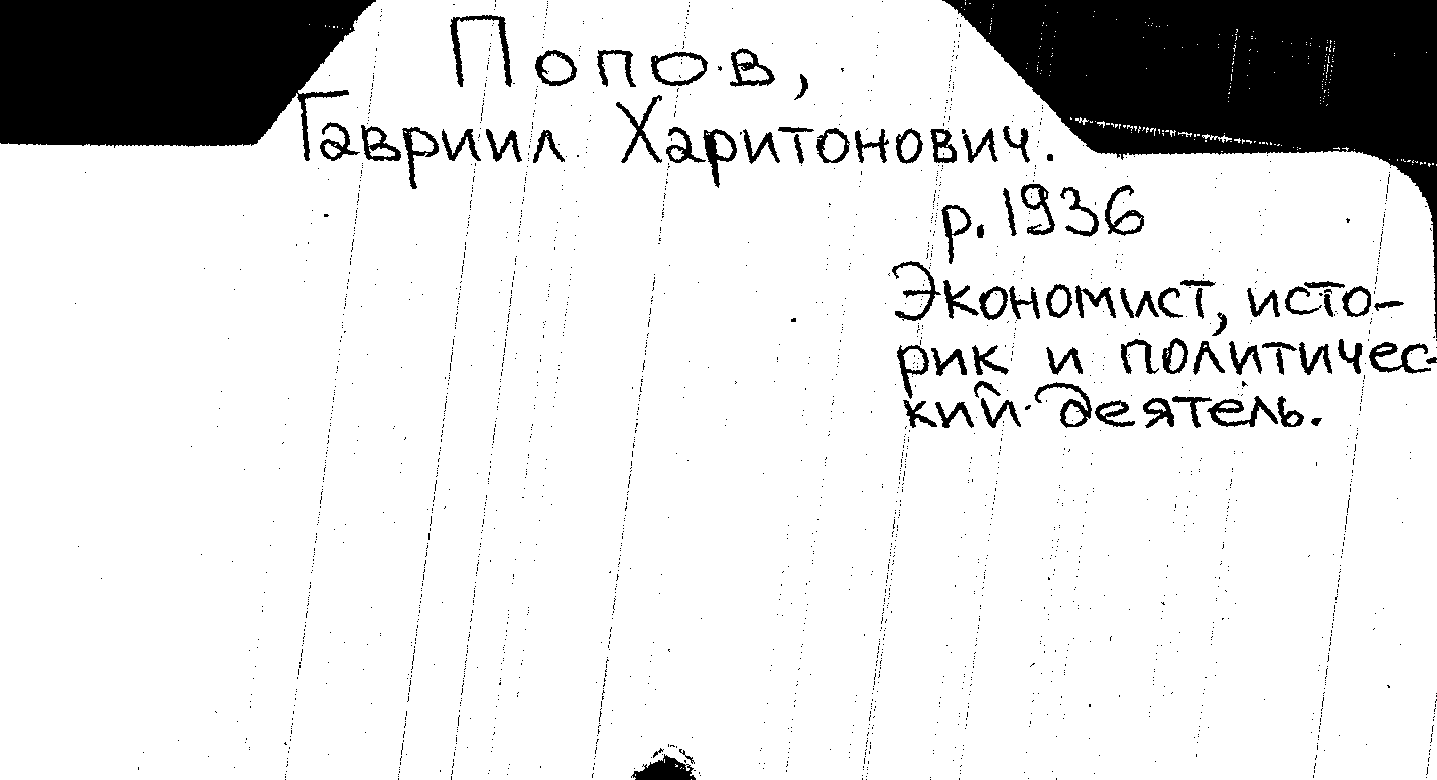 Попов,
Гавриил Харитонович.
р. 1936
Экономист, исто-
рик и политичес-
кий деятель.